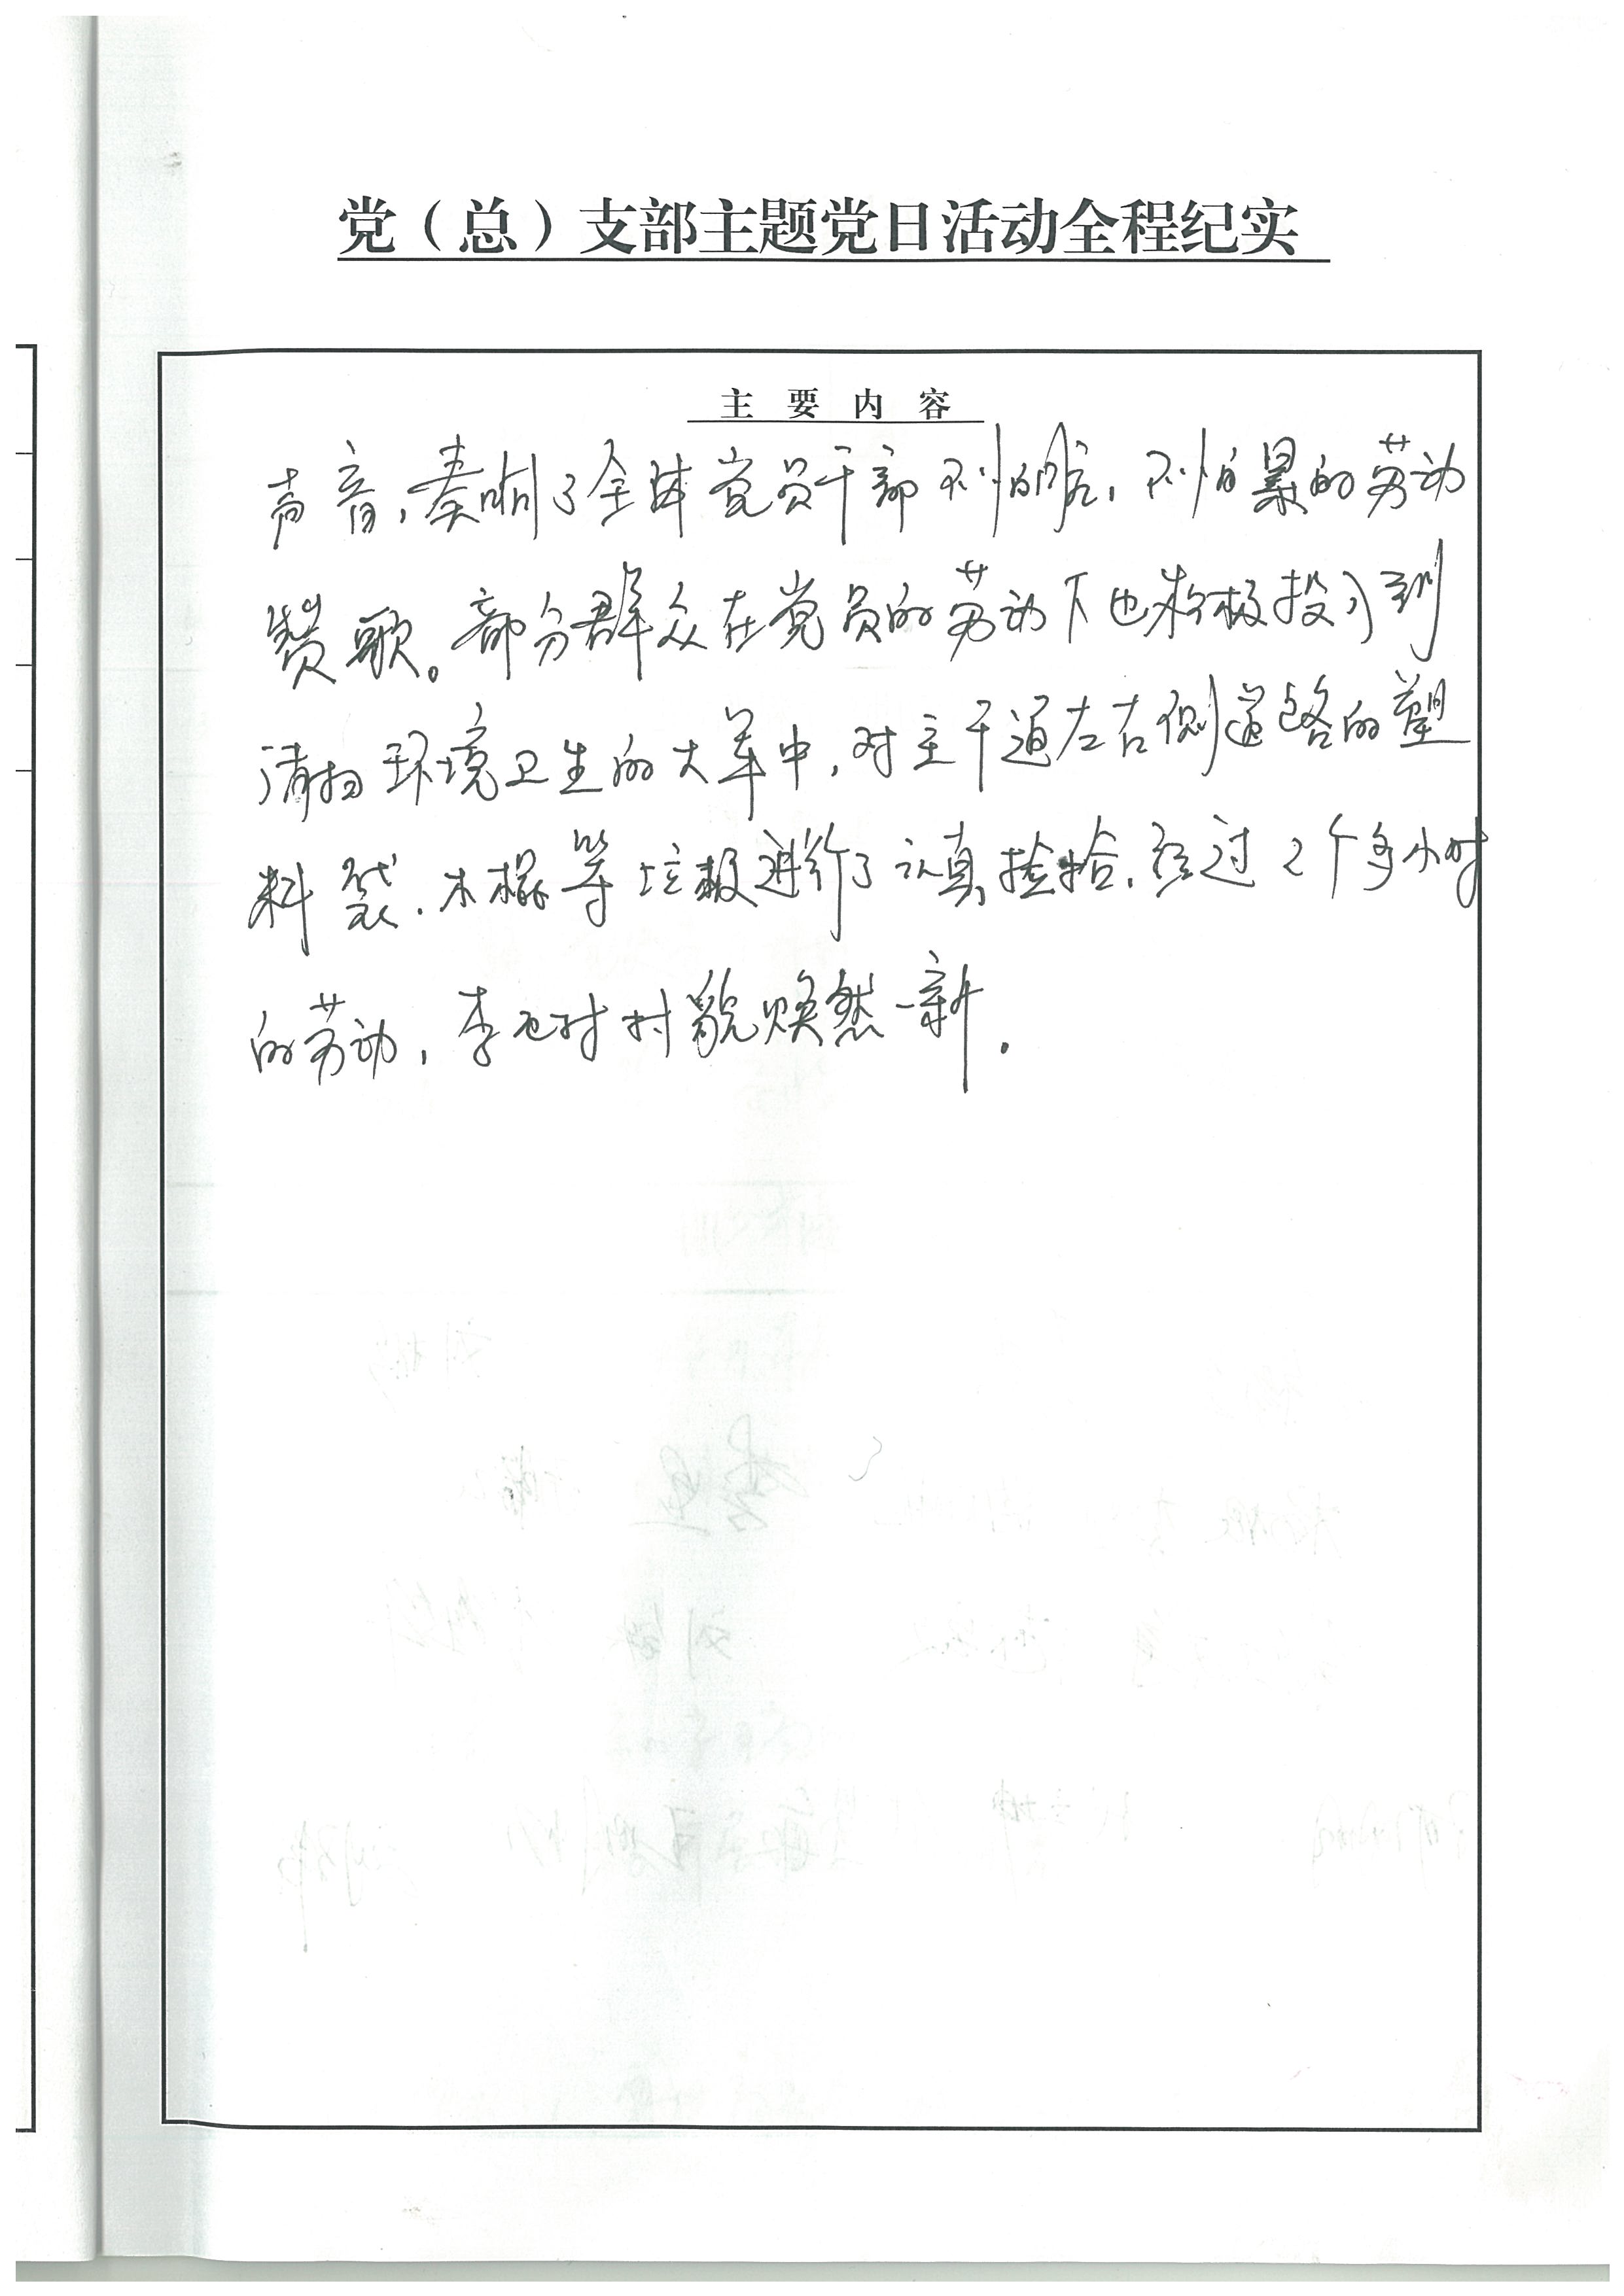 党（总）支部主题党日活动全程纪实
主要内容
声音，奏响了全体党员干部不怕脏，不怕累的劳动
赞歌。部分群众在党员的劳动下也积极投入到
清扫环境卫生的大军中，对主干道左右侧道路的塑
料袋、木棍等垃圾进行了认真捡拾，经过2个多小时
的劳动，李村村貌焕然一新。